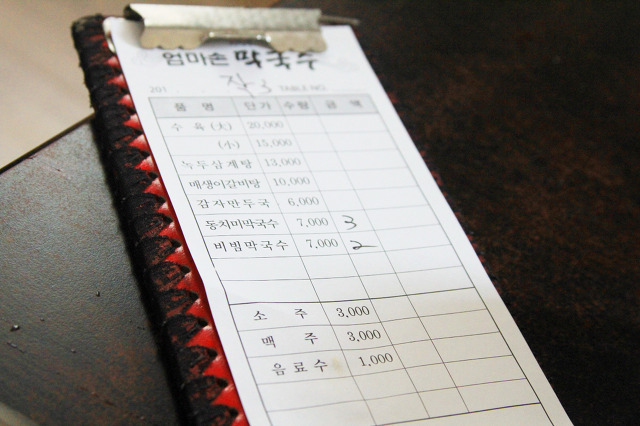 엄마손 막국수
201 TABLE NO.
품 명 단가 수량 금 액
수 육 (大) 20,000
(小) 15,000
녹두삼계탕 13,000
매생이갈비탕 10,000
감자만두국 6,000
동치미막국수 7,000 3
비빔막국수 7,000 2
소 주 3,000
맥 주 3,000
음료수 1,000